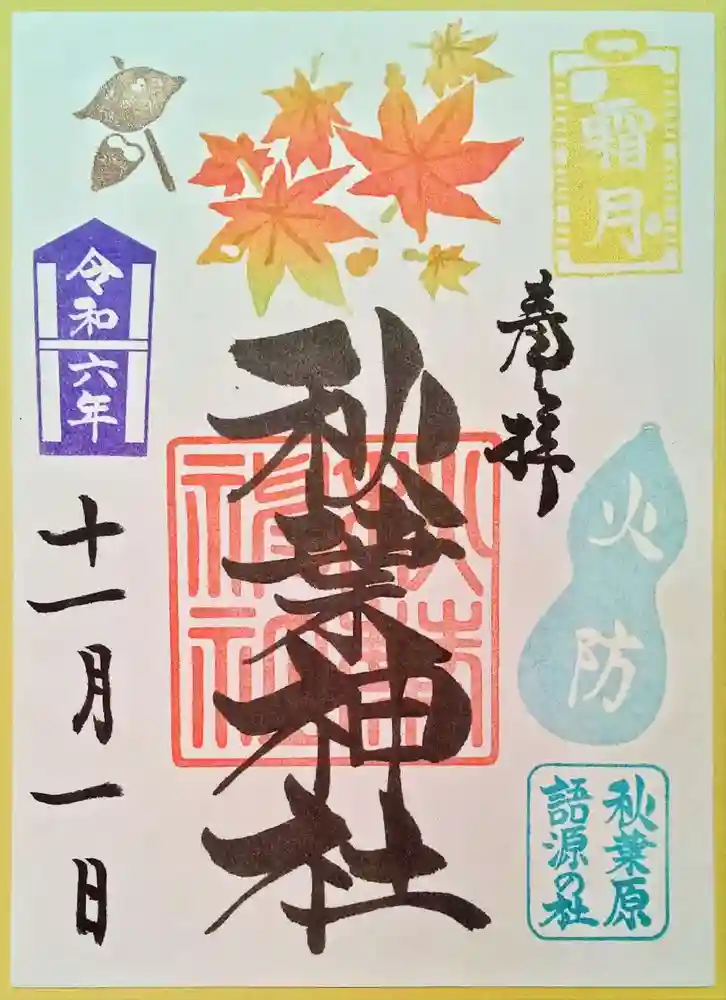 霜月
奉拝
火防
秋葉原
語源の社
秋葉神社
令和六年
十一月一日